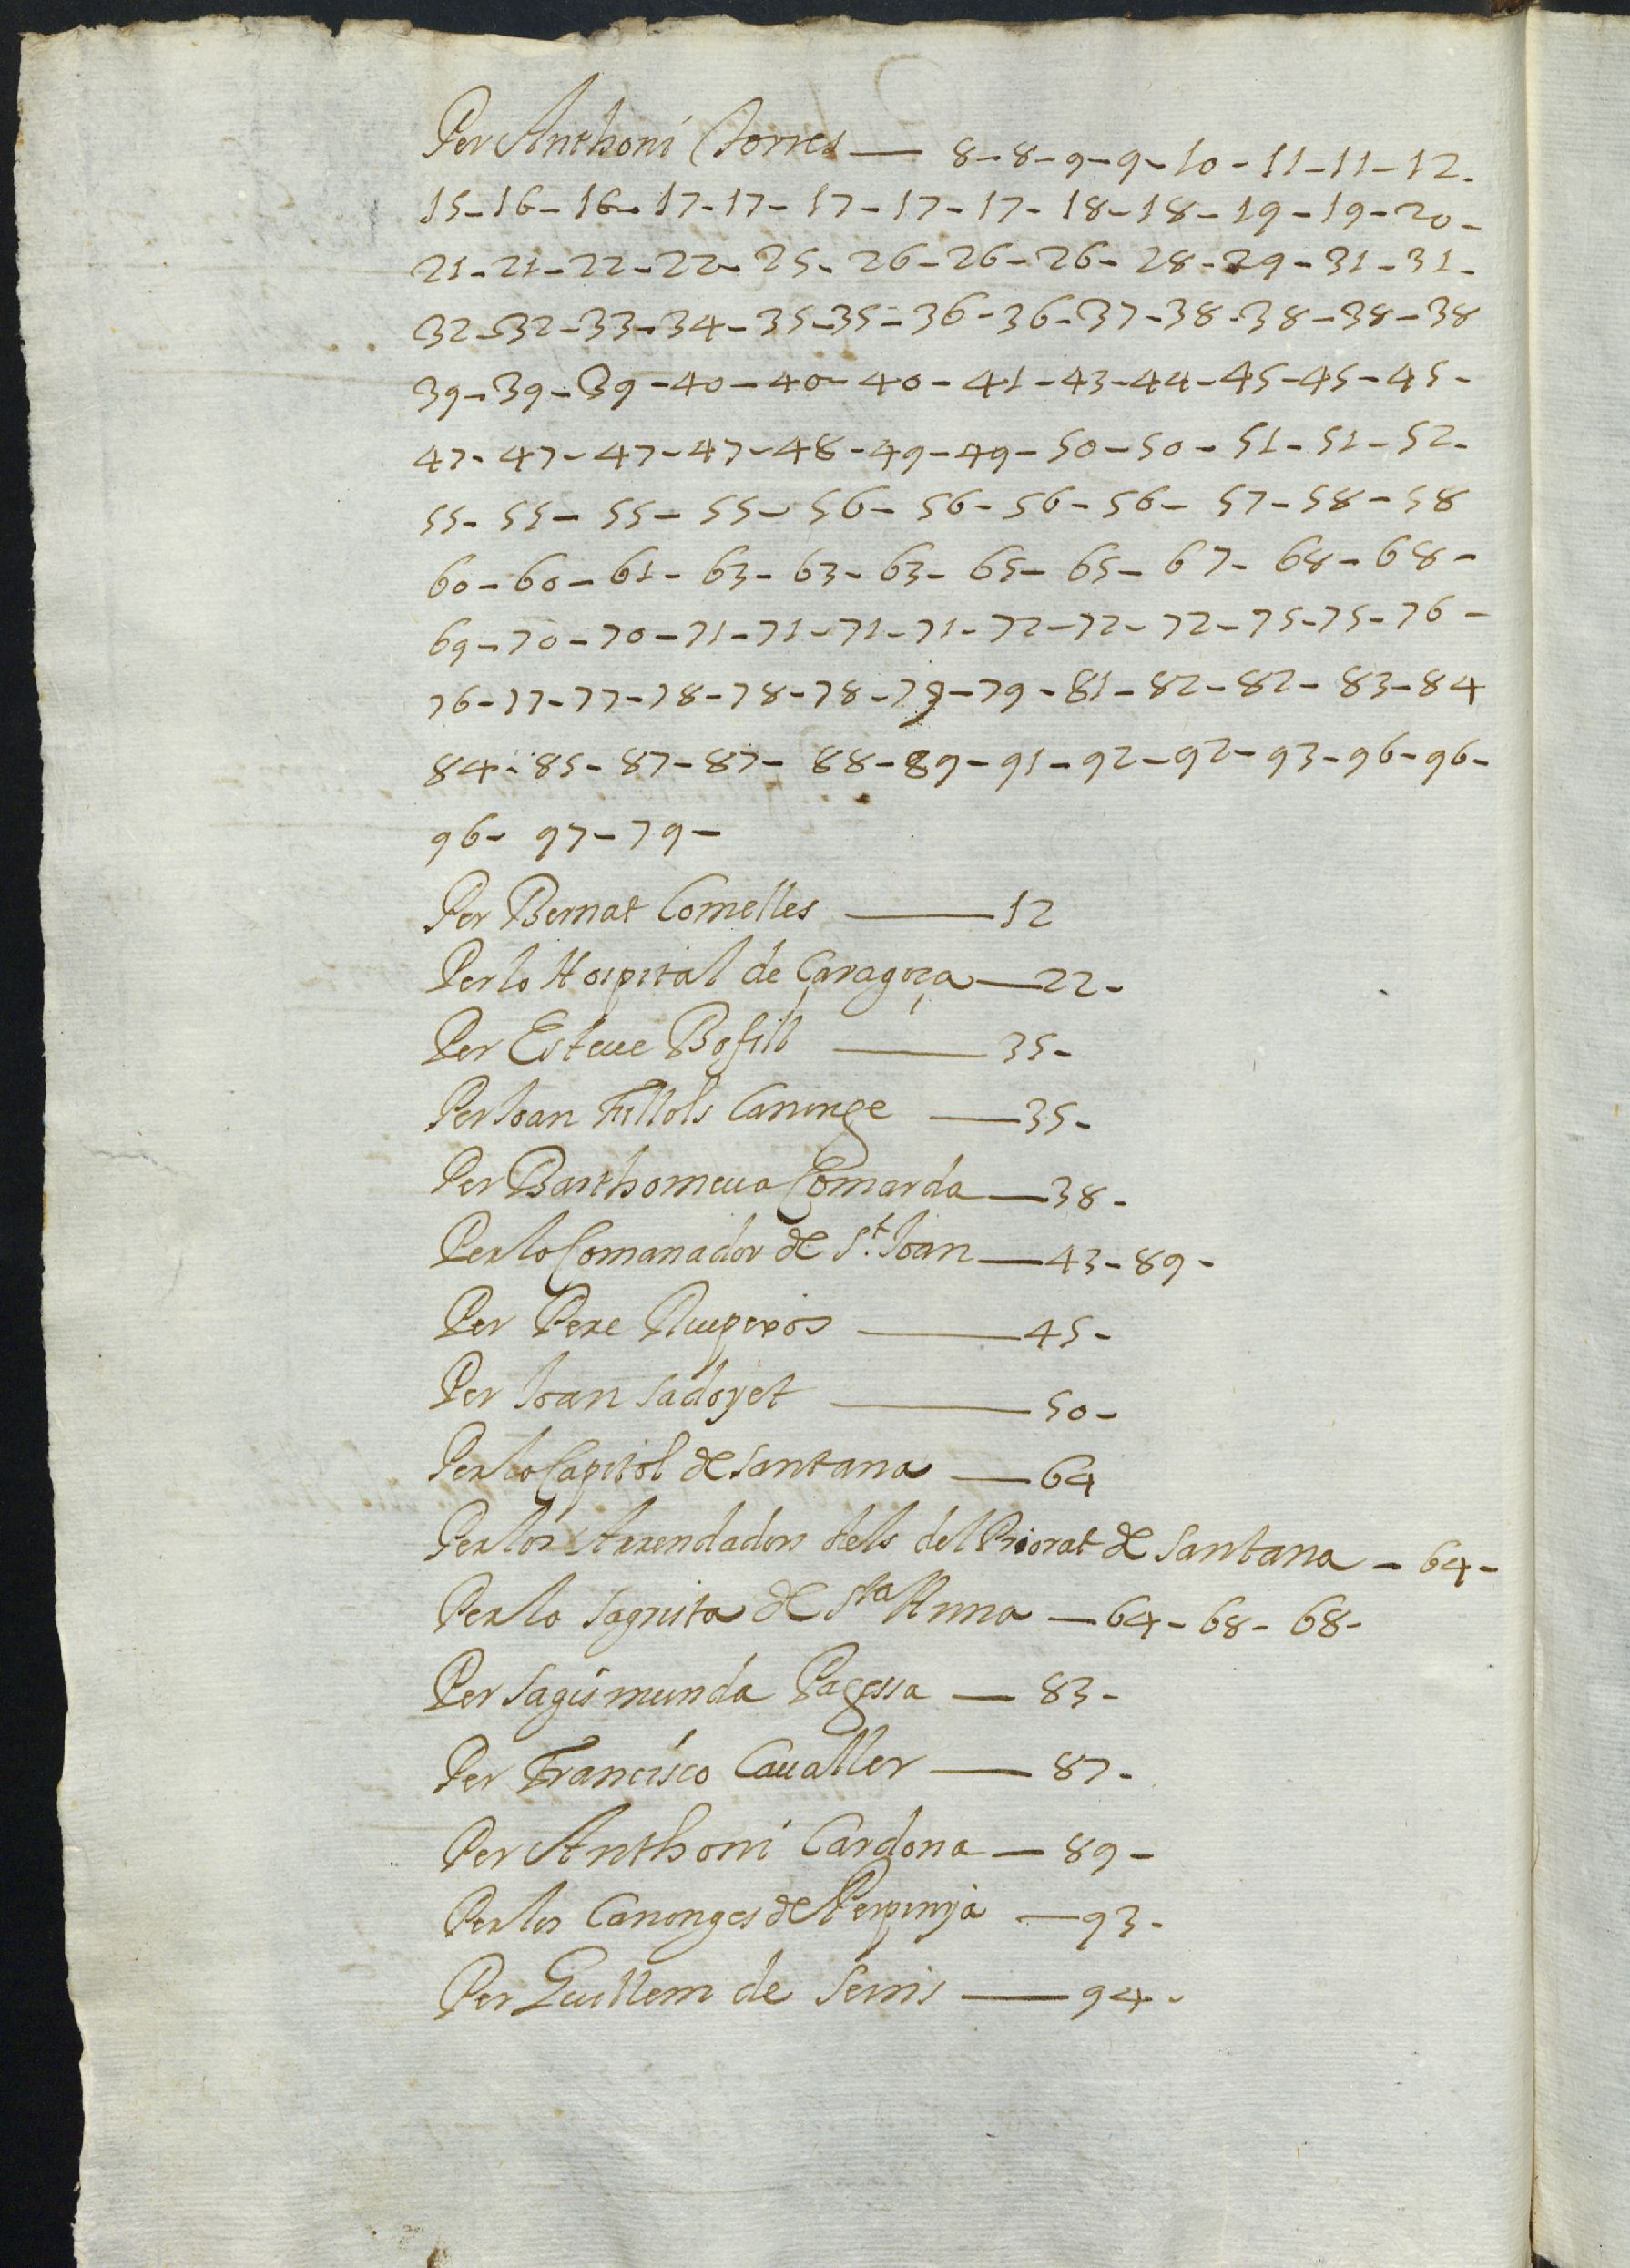 Per Anthoni Torres — 8-8-9-9-10-11-11-12-
15-16-16-17-17-17-17-17-18-18-19-19-20-
21-21-22-22-25-26-26-26-28-29-31-31-
32-32-33-34-35-35-36-36-37-38-38-38-38
39-39-39-40-40-40-41-43-44-45-45-45-
47-47-47-47-48-49-49-50-50-51-51-52-
55-55-55-55-56-56-56-56-57-58-58
60-60-61-63-63-63-65-65-67-68-68-
69-70-70-71-71-71-71-72-72-72-75-75-76-
76-77-77-78-78-78-79-79-81-82-82-83-84
84-85-87-87-88-89-91-92-92-93-96-96-
96-97-79-
Per Bernat Comelles — 12
Per lo Hospital de Çaragoça — 22-
Per Esteue Bofill — 35-
Per Ioan Fillols Canonge — 35-
Per Barthomeua Comarda — 38-
Per lo Comanador de St. Ioan — 43-89-
Per Pere — 45-
Per Ioan Sadoyet — 50-
Per lo Capitol de Santana — 64
Per los Arrendadors dels del Priorat de Santana — 64-
Per lo Sagrista de Sta Anna — 64-68-68-
Per Sagismunda Pagessa — 83-
Per Francisco Caualler — 87-
Per Anthoni Cardona — 89-
Per los Canonges de Perpinya — 93-
Per Guillem de — 94-